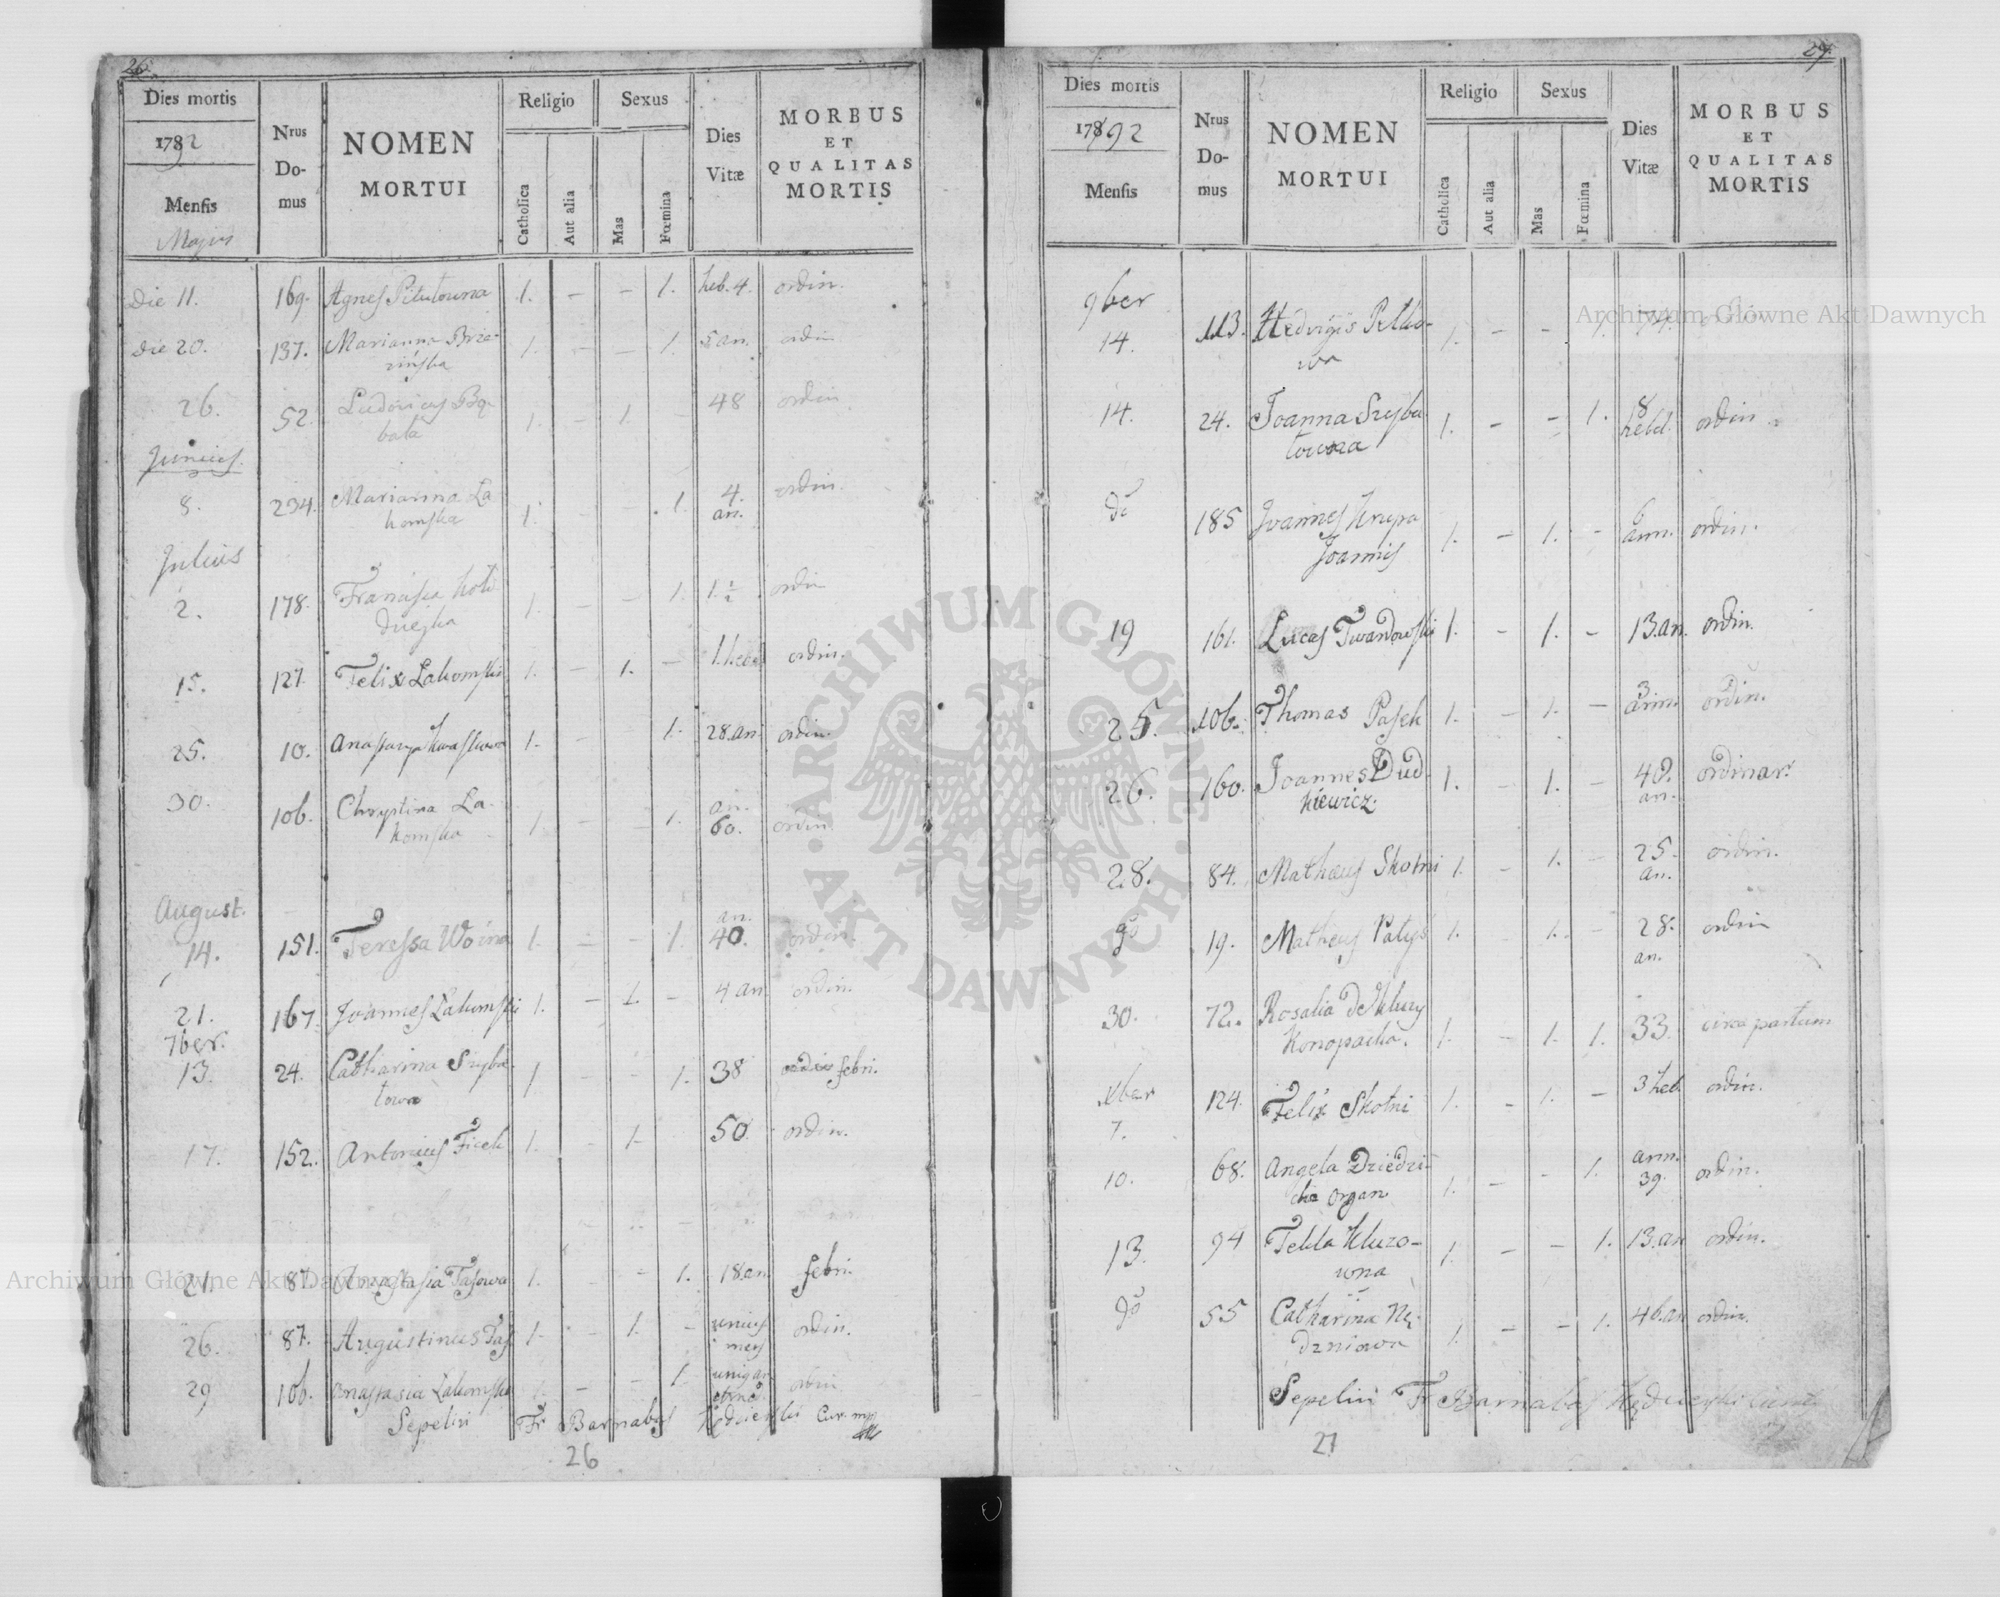 26.
Dies mortis
1792
Mensis
Majus
Nrus Domus
NOMEN MORTUI
Religio
Catholica
Aut alia
Sexus
Mas
Fœmina
Dies Vitæ
MORBUS ET QUALITAS MORTIS
Die 11. 169. Agnes Pitutowna 1. – – 1. heb. 4. ordin.
Die 20. 137. Marianna 1. – – 1. 5 an. ordin
26. 52. Ludovicus 1. 1. – 48 ordin
Junius.
8. 234. Marianna Lakomska 1. – – 1. 4. an. ordin.
Julius
2. 178. 1. – – 1. 1 ½ ordin
15. 127. Felix Lakomski 1. – 1. – ordin.
25. 10. 1. – – 1. 28. an. ordin.
30. 106. Chryptina Lakomska 1. – – 1. an. 60. ordin
August.
14. 151. Teressa Woina 1. – – 1. an. 40. ordin.
21. 167. Joannes Lakomski 1. – 1. – 4 an ordin.
7ber.
13. 24. Catharina 1. – – 1. 38 febri.
17. 152. Antonius Ficek 1. – 1. 50. ordin.
21. 87. Anastasia Tasowa 1. – – 1. 18. an febri.
26. 87. Augustinus Tas 1. – 1. – unius mens ordin.
29 106. Anastasia Lakomska – – 1. ordin
Sepelivi Fr Barnabas Cur. mpp
26
27.
Dies mortis
178 92
Mensis
Nrus Domus
NOMEN MORTUI
Religio
Catholica
Aut alia
Sexus
Mas
Fœmina
Dies Vitæ
MORBUS ET QUALITAS MORTIS
9ber
14. 113. Hedvigis Petkowa 1. – – 1. 74. ordin
14. 24. Joanna 1. – – 1. 8 hebd. ordin.
do 185 Joannes Krupa Joannis 1. – 1. – 6 ann. ordin.
19 161. Lucas Twardowski 1. – 1. – 13. an. ordin.
25. 106. Thomas Pasek 1. – 1. – 3 ann. ordin.
26. 160. Joannes Dudkiewicz. 1. – 1. – 40. an. ordinar.
28. 84. Matheus Skotni 1. – 1. – 25. an. ordin.
do 19. Matheus Patys 1. – 1. – 28. an. ordin
30. 72. Rosalia de Kluzy Konopacka. 1. – 1. 1. 33. circa partum
Xber
7. 124. Felix Skotni 1. – 1. – 3 heb. ordin.
10. 68. Angela organ. 1. – – 1. ann. 39. ordin.
13. 94 Tekla Kluzowna 1. – – 1. 13. an ordin.
do 55 Catharina Nędzniowa 1. – – 1. 46. an ordin.
Sepelivi Fr Barnabas
27
Archiwum Główne Akt Dawnych
Archiwum Główne Akt Dawnych
ARCHIWUM GŁÓWNE · AKT DAWNYCH ·